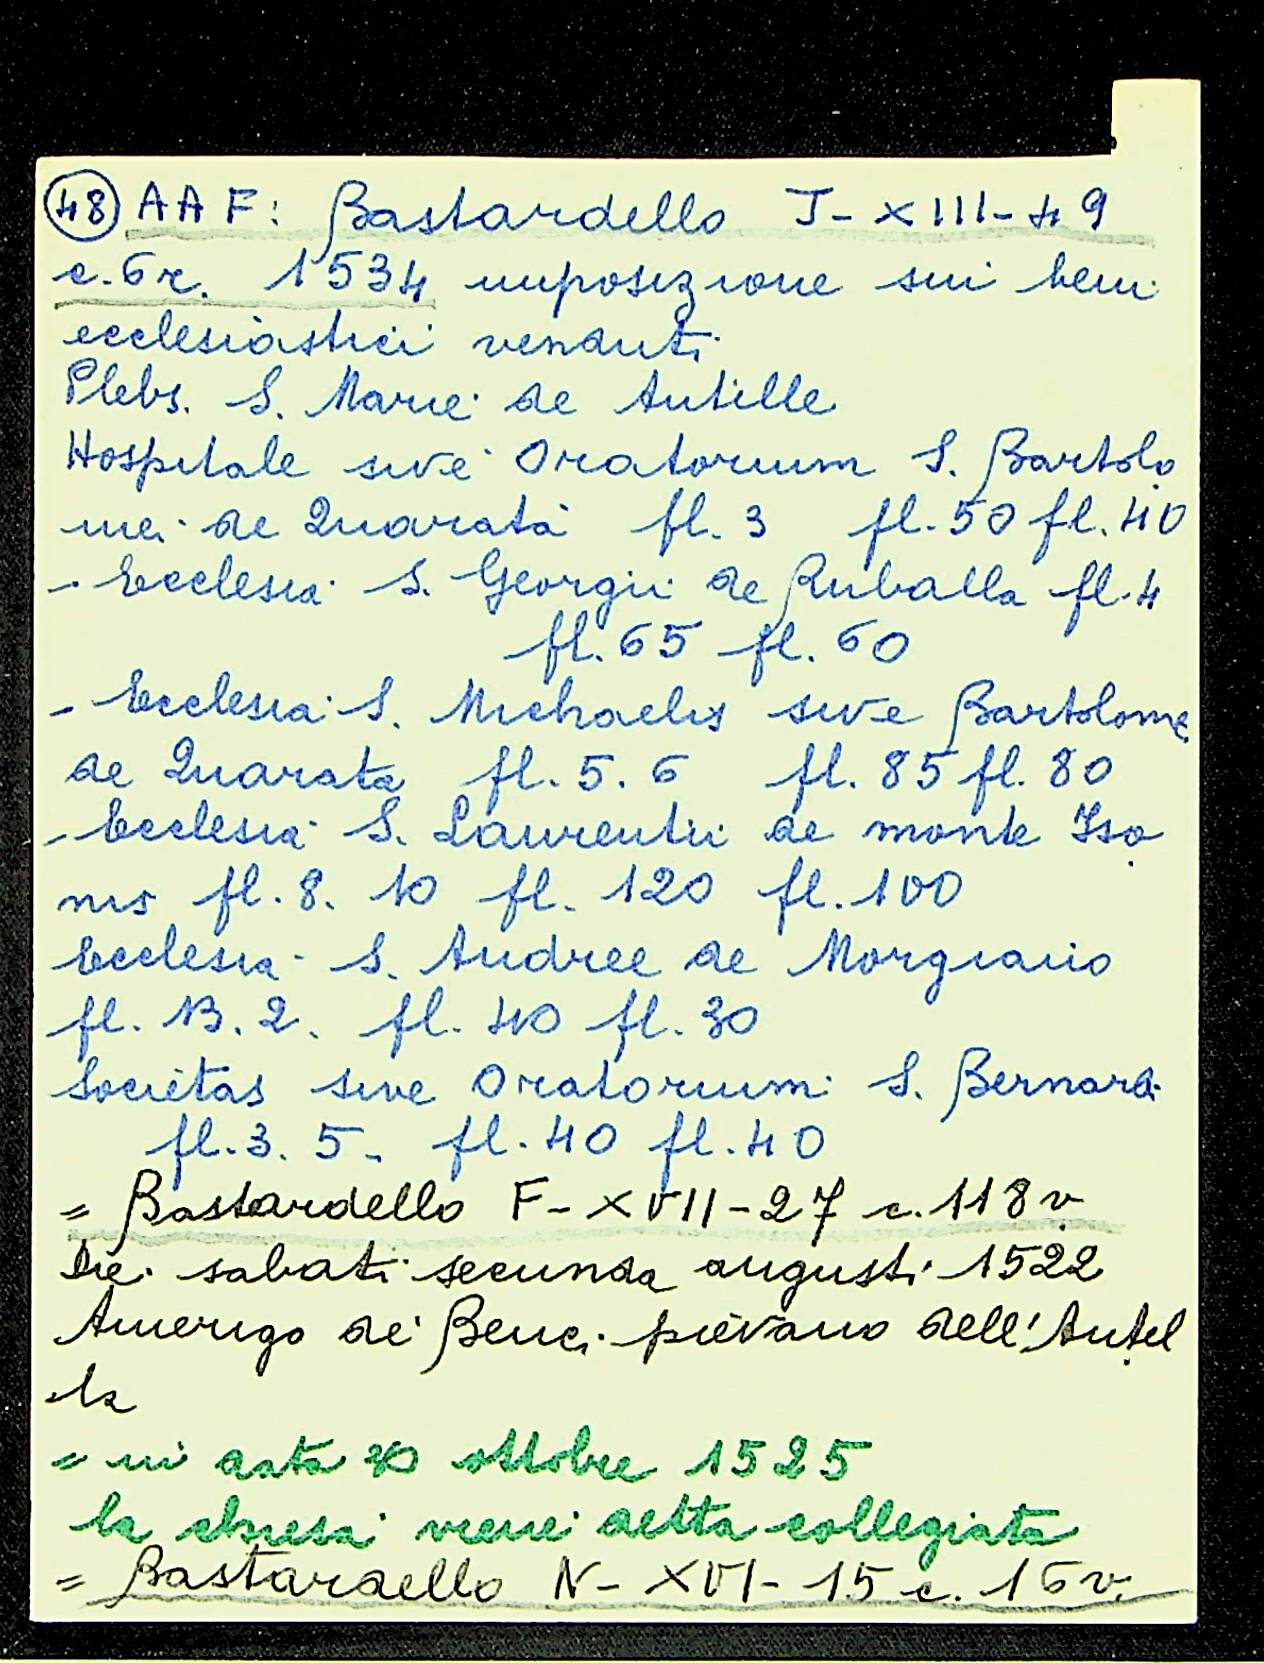 48 AAF: Bastardello J-XIII-49
c.6r. 1534 imposizione sui beni
ecclesiastici venduti
Plebs. S. Marie de Antille
Hospitale sive Oratorium S. Bartolo
mei de Quarata fl. 3 fl. 50 fl. 40
- Ecclesia S. Georgii de Ruballa fl. 4
fl. 65 fl. 60
- Ecclesia S. Michaelis sive Bartolome
de Quarata fl. 5. 6 fl. 85 fl. 80
- Ecclesia S. Laurentii de monte Iso
nis fl. 8. 10 fl. 120 fl. 100
Ecclesia S. Andree de Morgiano
fl. 13. 2. fl. 40 fl. 30
Societas sive Oratorium S. Bernardi
fl. 3. 5 - fl. 40 fl. 40
= Bastardello F-XVII-27 c. 118v
Die sabati secunda augusti 1522
Amerigo de' Benci pievano dell'Antel
la
= in data 30 ottobre 1525
la chiesa viene detta collegiata
= Bastardello N-XVI-15 c. 16v.